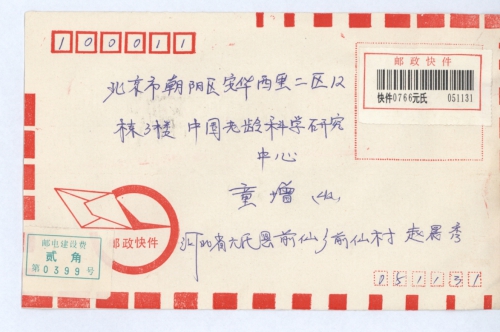 100011
邮政快件
快件0766元氏 051131
北京市朝阳区安华西里二区12
栋3楼 中国老龄科学研究
中心
童增 收
邮政快件
邮电建设费
贰角
第0399号
河北省元氏县前仙乡前仙村 赵晨秀
051131